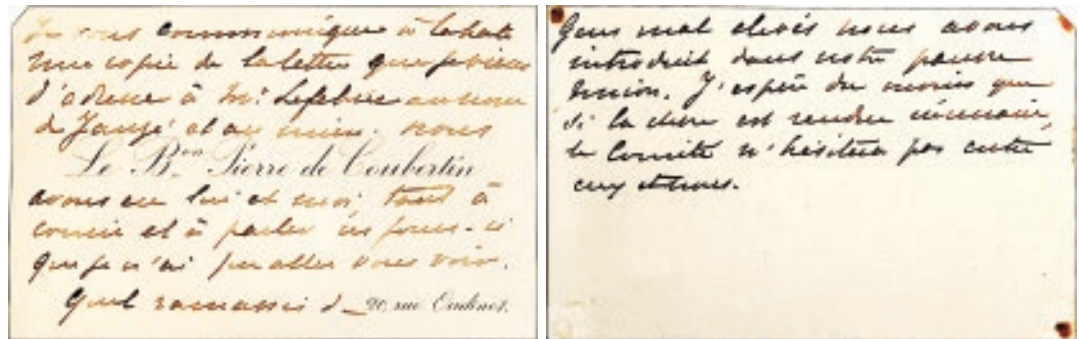 Je vous communique à la hâte
une copie de la lettre que je viens
d'adresser à Mr. Lefebvre au nom
de Janzé et au mien. nous
Le Bon Pierre de Coubertin
avons eu lui et moi tant à
courir et à parler ces jours-ci
que je n'ai pu aller vous voir.
Quel ramassis d
20, rue Oudinot.
gens mal élevés nous avons
introduit dans notre pauvre
Union. J'espère du moins que
si la chose est rendue nécessaire,
le Comité n'hésitera pas entre
eux et nous.